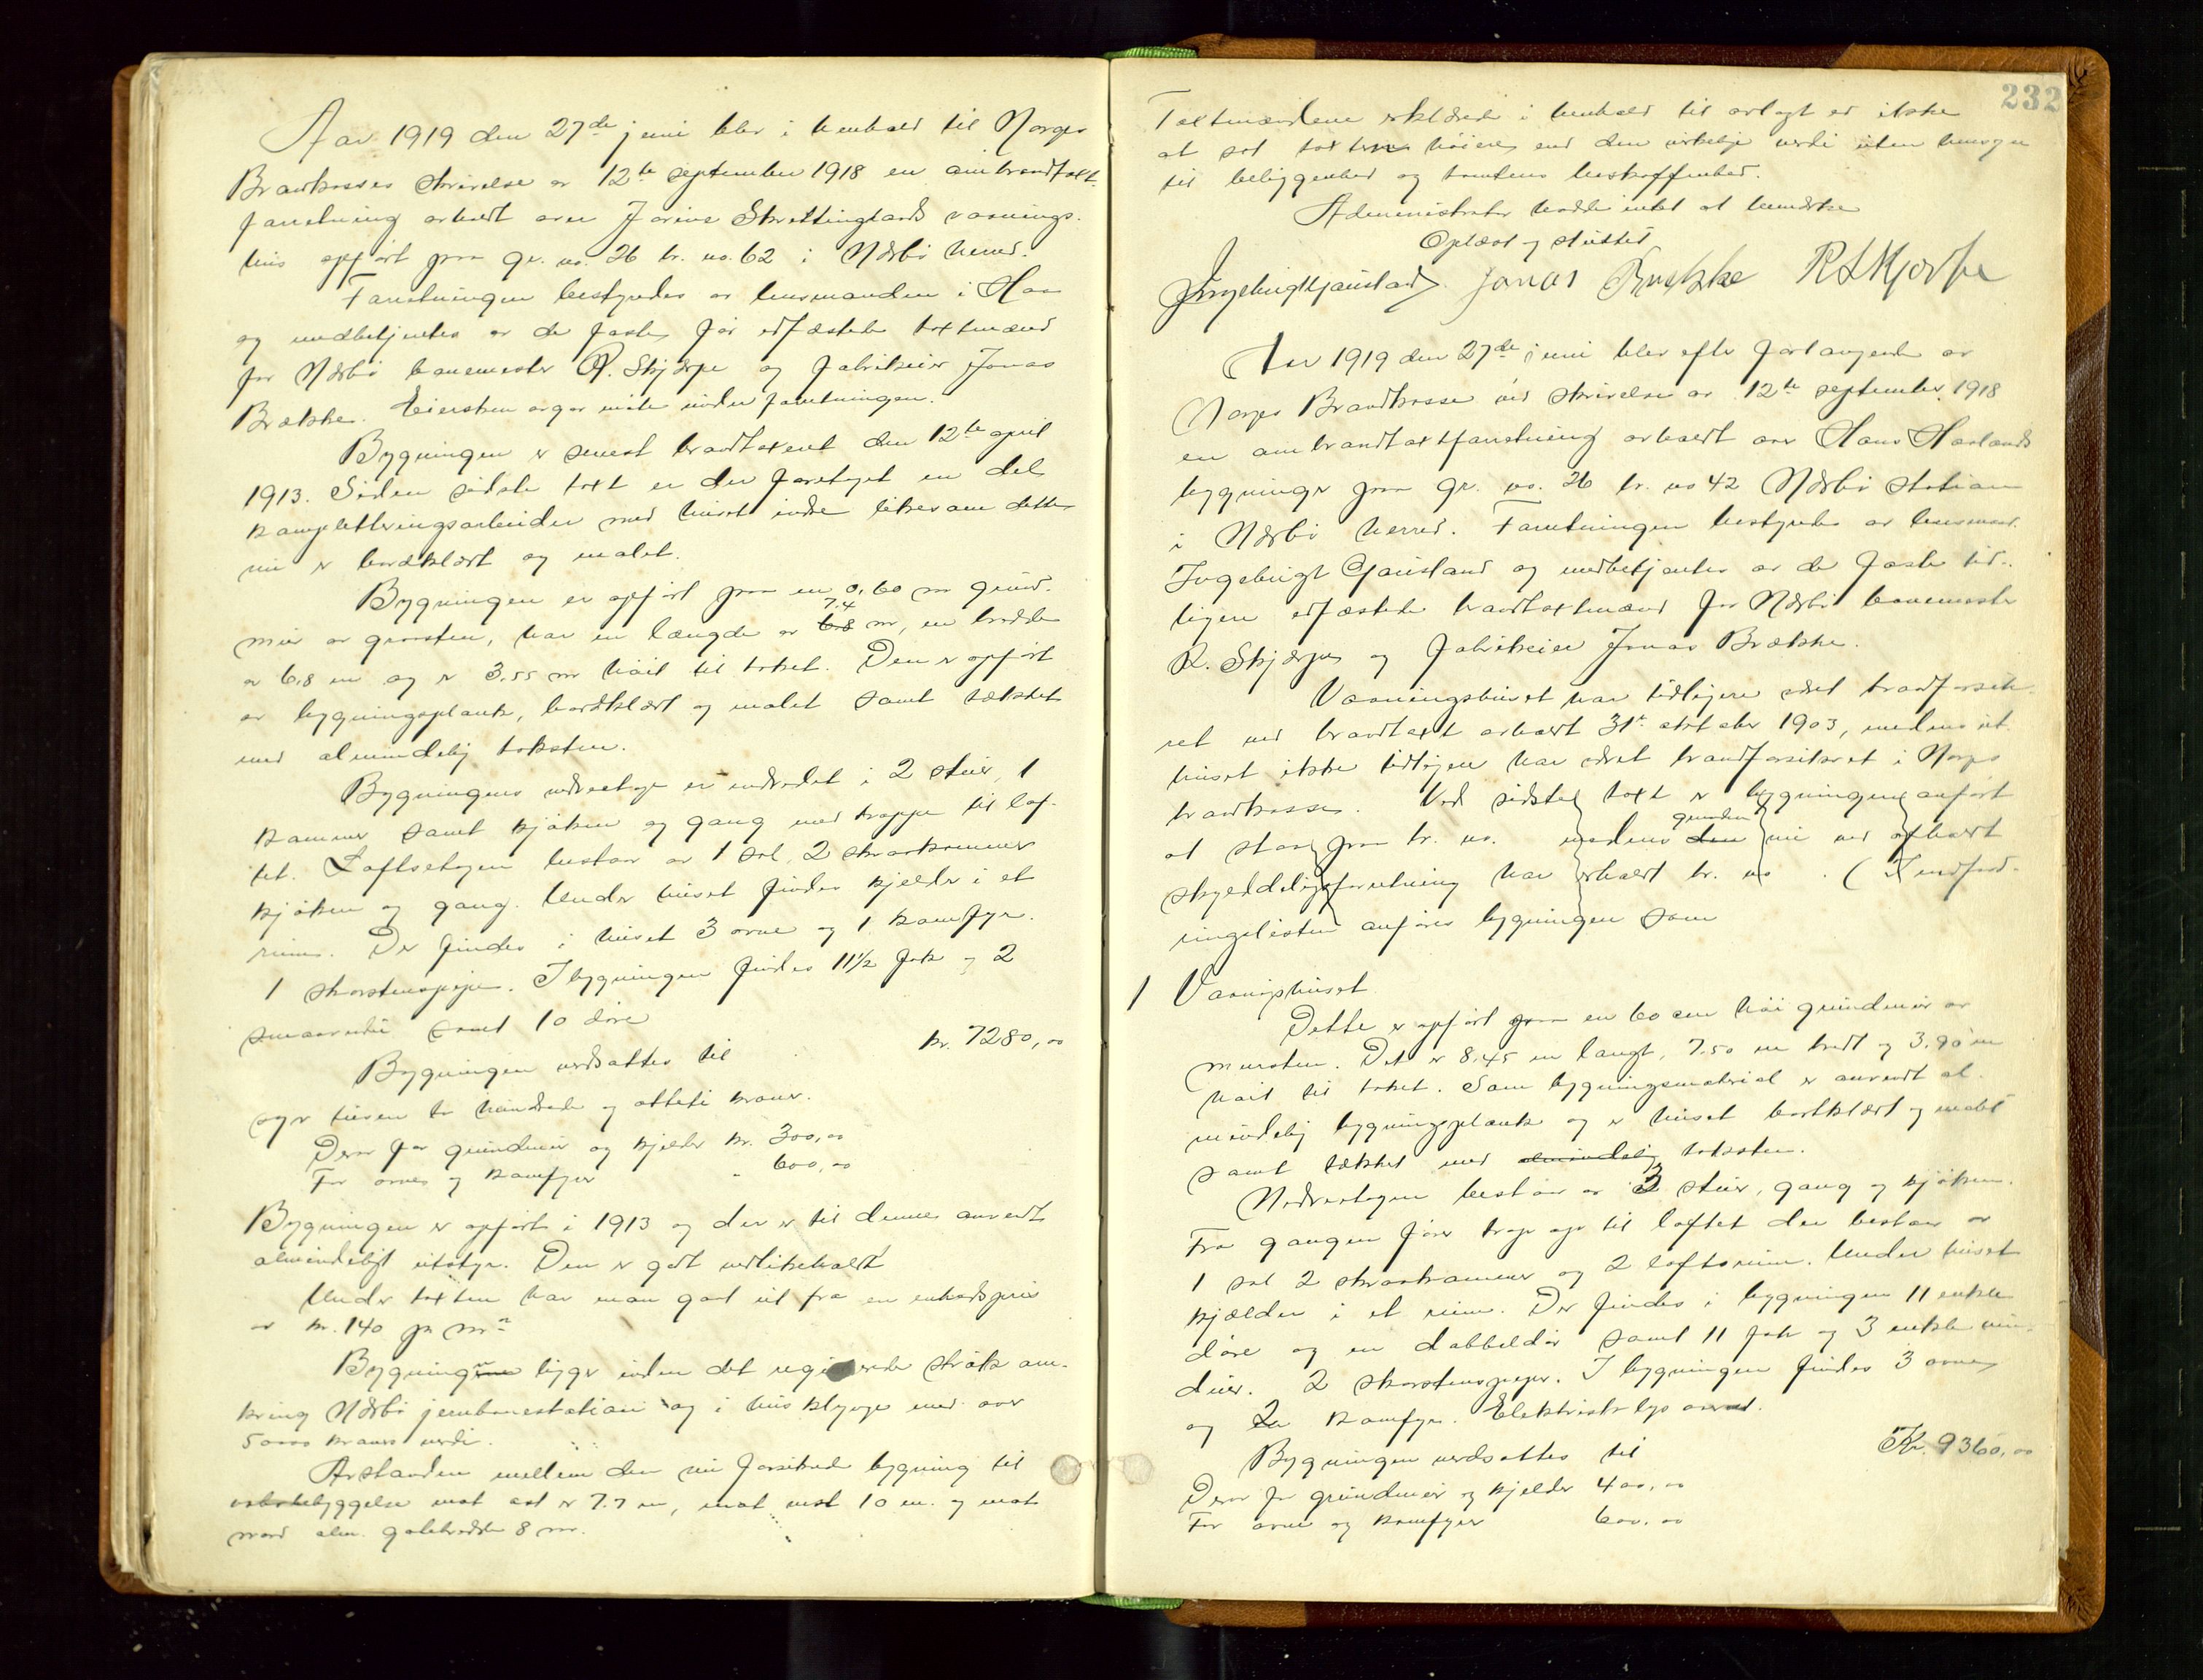 Aar 1919 den 27de juni blev i henhold til Norges
Brandkasses skrivelse av 12te september 1918 en ombrandtakst-
forretning avholdt over Jorine Skrettinglands vaanings-
hus opført paa gr. no. 26 br. no. 62 i Nærbø herred.
Forretningen bestyredes av lensmanden i Haa
og medbetjentes av de faste før edfæstede takstmænd
for Nærbø banemester R. Skjærpe og fabrikeier Jonas
Brække. Eiersken avgav møte under forretningen.
Bygningen er senest brandtaxeret den 12te april
1913. Siden sidste takst er der foretaget en del
kompletteringsarbeider med huset indre likesom dette
nu er bordklædt og malet.
Bygningen er opført paa en 0,60 m grund-
7.4
mur av graasten, har en længde av 6.8 m, en bredde
av 6,8 m og er 3.55 m høit til taket. Den er opført
av bygningsplank, bordklædt og malet samt tækket
med almindelig taksten.
Bygningens underetage er indredet i 2 stuer, 1
kammer samt kjøken og gang med trappe til lof-
tet. Loftsetagen bestaar av 1 sal, 2 skraakammer
kjøken og gang. Under huset findes kjelder i et
rum. Der findes i huset 3 ovne og 1 komfyr.
1 skorstenspipe. I bygningen findes 11½ fak og 2
smaavindu samt 10 døre
Bygningen verdsattes til kr. 7280,00
syv tusen to hundrede og otteti kroner.
Derav for grundmur og kjelder kr. 300,00
For ovnes og komfyrer " 600,00
Bygningen er opført i 1913 og der er til denne anvendt
almindeligt utstyr. Den er godt vedlikeholdt
Under taksten har man gaat ut fra en enhedspris
av kr. 140 pr m2
Bygningen ligger inden det regulerede strøk om-
kring Nærbø jernbanestation og i husklynge med over
50000 kroners verdi.
Avstanden mellem den nu forsikrede bygning til
nabobebyggelse mot øst er 7.7 m, mot vest 10 m. og mot
nord alm. gatebredde 8 m.
232
Takstmændene erklærede i henhold til avlagt ed ikke
at sat taksten høiere end den virkelige verdi uten hensyn
til beliggenhed og tomtens beskaffenhed.
Administrator hadde intet at bemerke
Oplæst og sluttet
Ingebrigt Gjausland Jonas Brekke R L Skjærpe
Aar 1919 den 27de juni blev efter forlangende av
Norges Brandkasse ved skrivelse av 12te september 1918
en ombrandtakstforretning avholdt over Hans Haalands
bygninger paa gr. no. 26 br. no 42 Nærbø station
i Nærbø herred. Forretningen bestyredes av lensmand
Ingebrigt Gausland og medbetjentes av de faste tid-
ligere edfæstede brandtakstmænd for Nærbø banemester
R. Skjærpe og fabrikeier Jonas Brække.
Vaaningshuset har tidligere været brandforsik-
ret ved brandtakst avholdt 31te oktober 1903, medens ut-
huset ikke tidligere har været brandforsikret i Norges
brandkasse. Ved sidste takst er bygningene anført
grunden
at staa paa br. no. medens den nu ved avholdt
skylddelingsforretning har erholdt br. no . ( I indford-
ringslisten anføres bygningen som
1 Vaaningshuset
Dette er opført paa en 60 cm høi grundmur av
mursten. Det er 8.45 m langt, 7.50 m bredt og 3.90 m
høit til taket. Som bygningsmaterial er anvendt al-
mindelig bygningsplank og er huset bordklædt og malet
samt tækket med almindelig taksten.
Nedreetagen bestaar av 3 stuer, gang og kjøken.
Fra gangen fører trap op til loftet der bestaar av
1 sal 2 skraakammer og 2 loftsrum. Under huset
kjælder i et rum. Der findes i bygningen 11 enkle
døre og en dobbeldør samt 11 fak og 3 enkle vin-
duer. 2 skorstenspiper. I bygningen findes 3 ovne
og 2 komfyr. Elektrisk lys
Bygningen verdsattes til Kr. 9360,00
Derav for grundmur og kjelder 400,00
For ovne og komfyrer 600,00